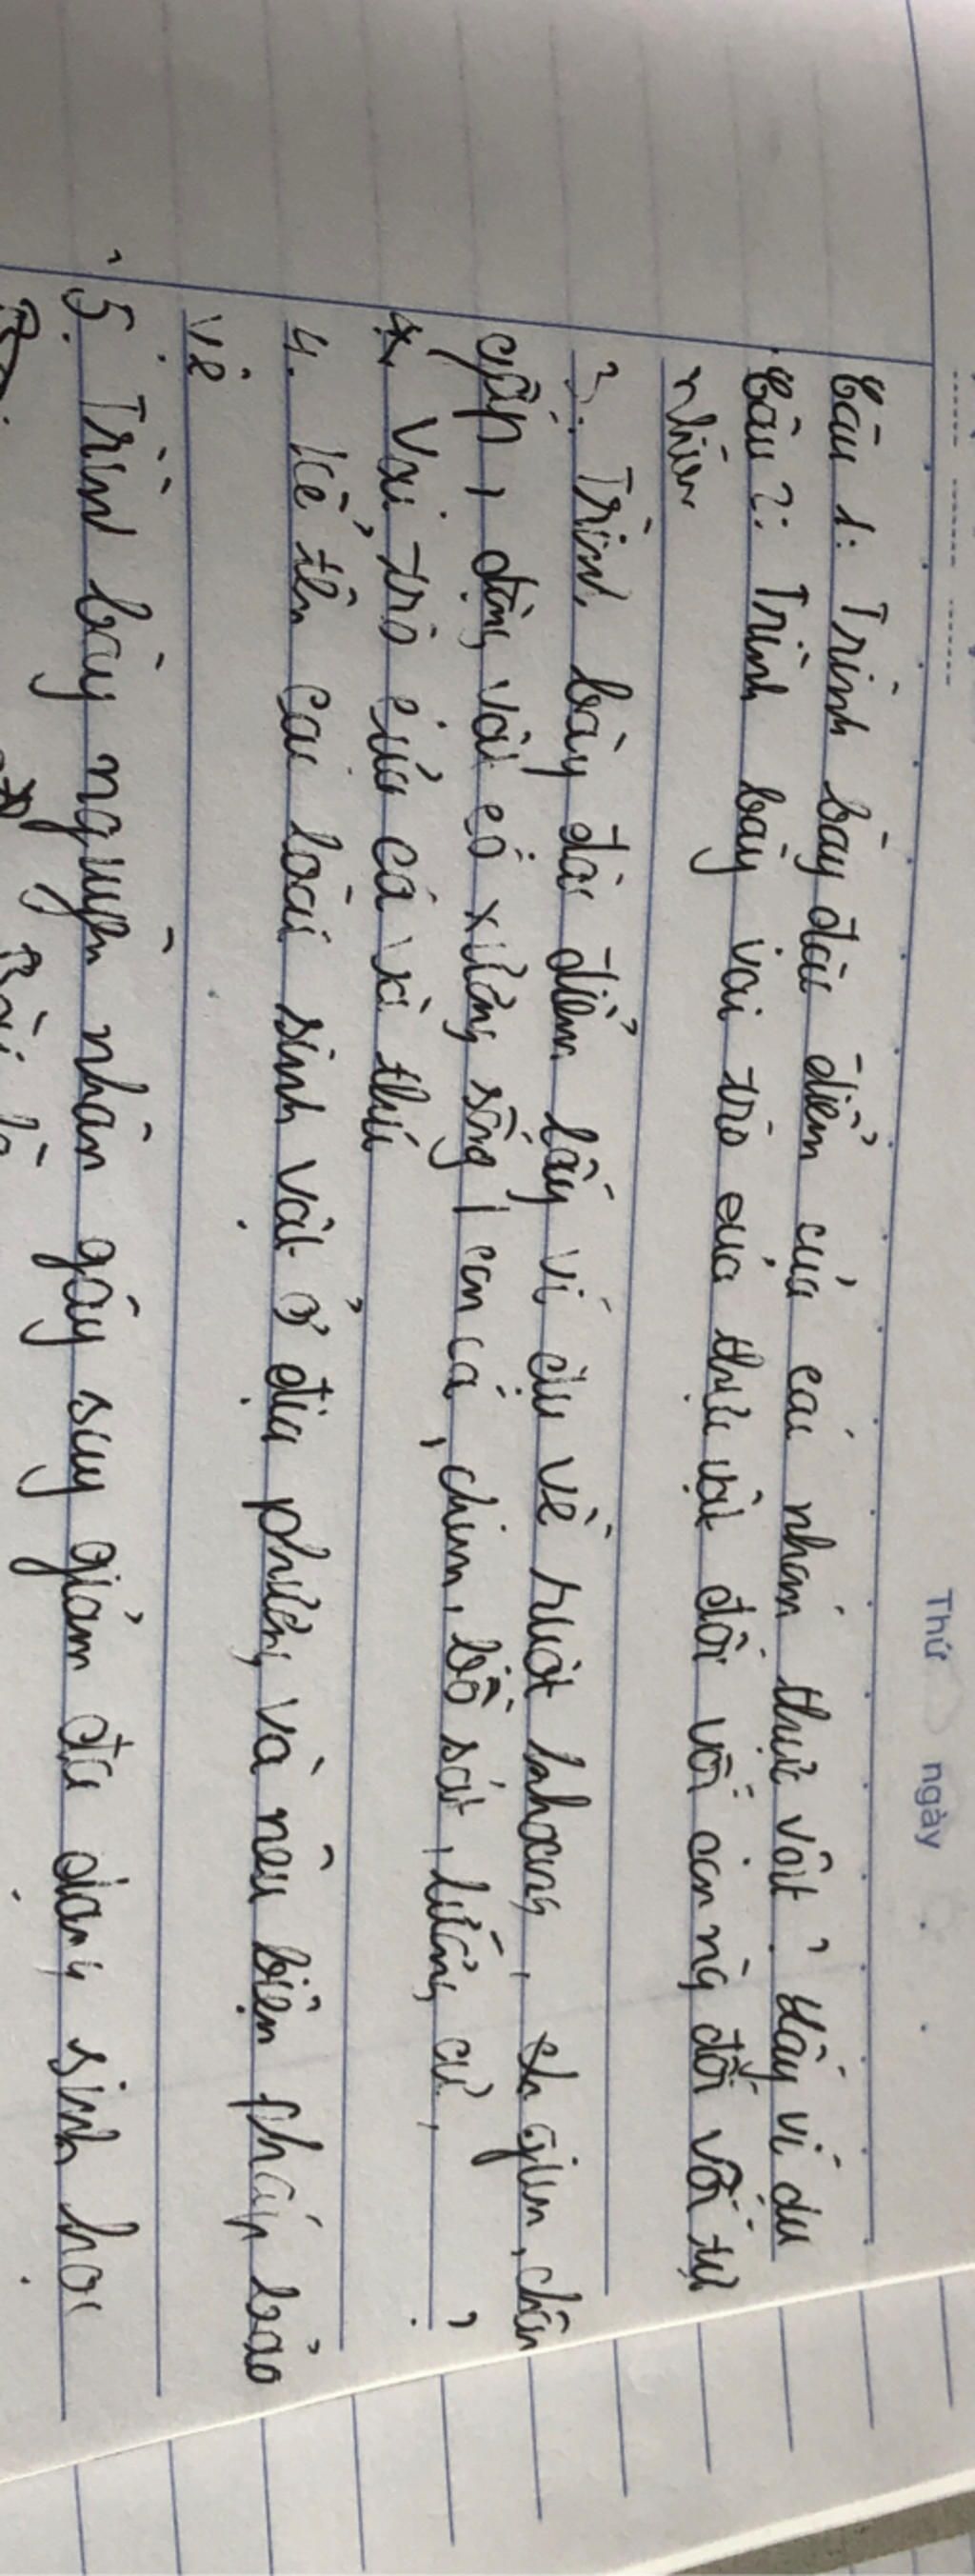 Thứ ngày
Câu 1: Trình bày đặc điểm của các nhóm thực vật? Lấy ví dụ
Câu 2: Trình bày vai trò của thực vật đối với con ng đối với tự
nhiên
3. Trình bày đặc điểm lấy ví dụ về ruột khoang, giun, chân
động vật có xương sống | con cá, chim, bò sát, lưỡng cư, ?
Vai trò của cá và thú
4. Kể tên các loài sinh vật ở địa phương và nêu biện pháp bảo
vệ
5. Trình bày nguyên nhân gây suy giảm đa dạng sinh học